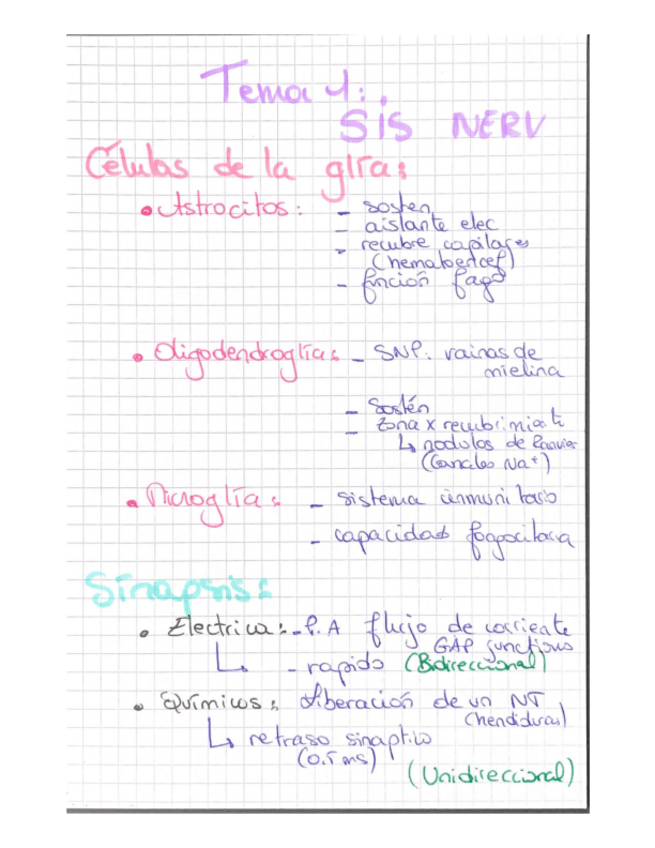 Tema 1:
SIS NERV
Células de la glía:
• Astrocitos: - sosten
- aislante elec
- recubre capilares
(hematoencef)
- función fago
• Oligodendroglías - SNP. vainas de
mielina
- Sostén
- Zona x recubrimiento
↳ nodulos de Ranvier
(Canales Na⁺)
• Microglía: - sistema inmunitario
- capacidad fagocitaria
Sinapsis:
• Electrica: - P.A flujo de corriente
GAP junctions
↳ - rapido (Bidireccional)
• Químicas: liberación de un NT
(hendidura)
↳ retraso sinaptico
(0.5 ms)
(Unidireccional)